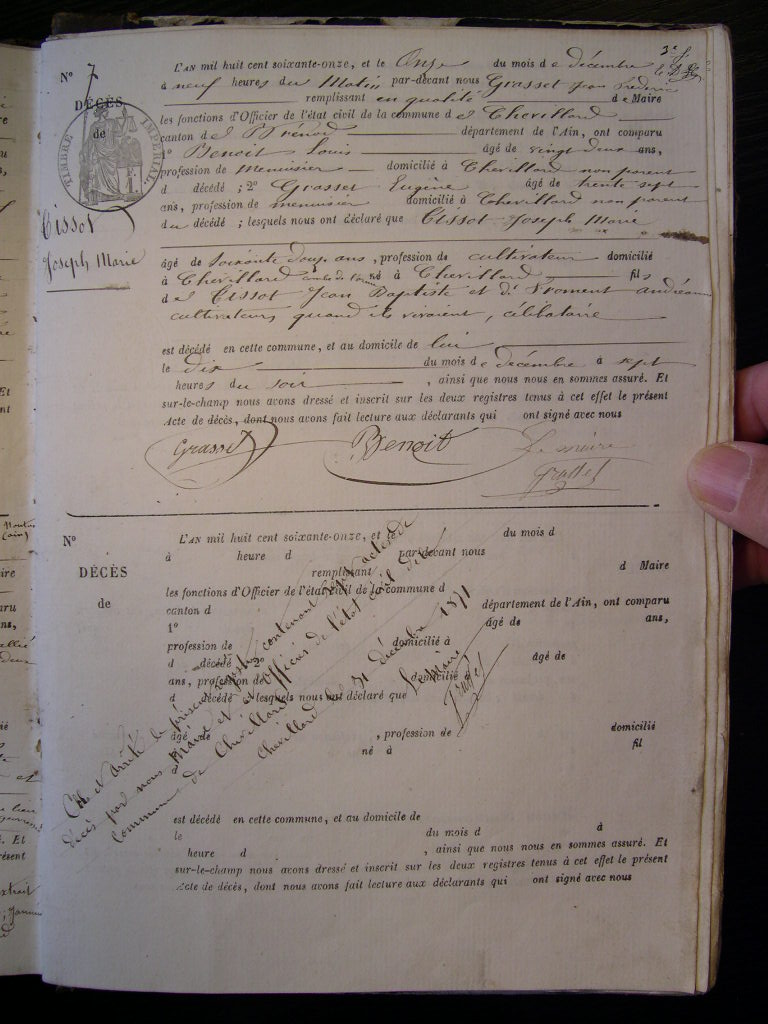 N° 7
DÉCÈS
de
TIMBRE IMPÉRIAL
Tissot
Joseph Marie
L'AN mil huit cent soixante-onze, et le Onze du mois de décembre
à neuf heures du Matin par-devant nous Grasset Jean Frédéric
remplissant en qualité de Maire
les fonctions d'Officier de l'état civil de la commune de Chevillard
canton de Brénod département de l'Ain, ont comparu
1° Benoit Louis âgé de vingt deux ans,
profession de menuisier domicilié à Chevillard non parent
d décédé ; 2° Grasset Eugène âgé de trente sept
ans, profession de menuisier domicilié à Chevillard non parent
du décédé ; lesquels nous ont déclaré que Tissot Joseph Marie
âgé de soixante douze ans, profession de cultivateur domicilié
à Chevillard né à Chevillard fils
de Tissot Jean Baptiste et de Froment andréanne
cultivateurs quand ils vivaient, célibataire
est décédé en cette commune, et au domicile de lui
le dix du mois de décembre à sept
heures du soir , ainsi que nous nous en sommes assuré. Et
sur-le-champ nous avons dressé et inscrit sur les deux registres tenus à cet effet le présent
Acte de décès, dont nous avons fait lecture aux déclarants qui ont signé avec nous
Grasset Benoit Le maire
Grasset
N°
DÉCÈS
de
L'AN mil huit cent soixante-onze, et le du mois d
à heure d par-devant nous
remplissant d Maire
les fonctions d'Officier de l'état civil de la commune d
canton d département de l'Ain, ont comparu
1° âgé de ans,
profession de domicilié à
d décédé 2° âgé de
ans, profession de domicilié à
d décédé lesquels nous ont déclaré que
âgé de , profession de domicilié
à né à fil
d
est décédé en cette commune, et au domicile de
le du mois d à
heure d , ainsi que nous nous en sommes assuré. Et
sur-le-champ nous avons dressé et inscrit sur les deux registres tenus à cet effet le présent
Acte de décès, dont nous avons fait lecture aux déclarants qui ont signé avec nous
Clos et arrêté le présent registre contenant sept actes de
décès par nous Maire et Officier de l'état civil de la
commune de Chevillard
Chevillard le 31 décembre 1871
Le Maire
Grasset